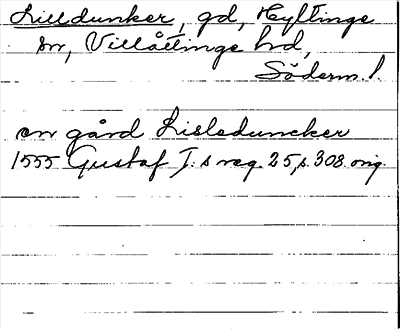 Lilldunker, gd, Hyltinge
sn, Villåttinge hd,
Söderm. l.
en gård Lisleduncker
1555 Gustaf I:s reg. 25, s. 308 orig.